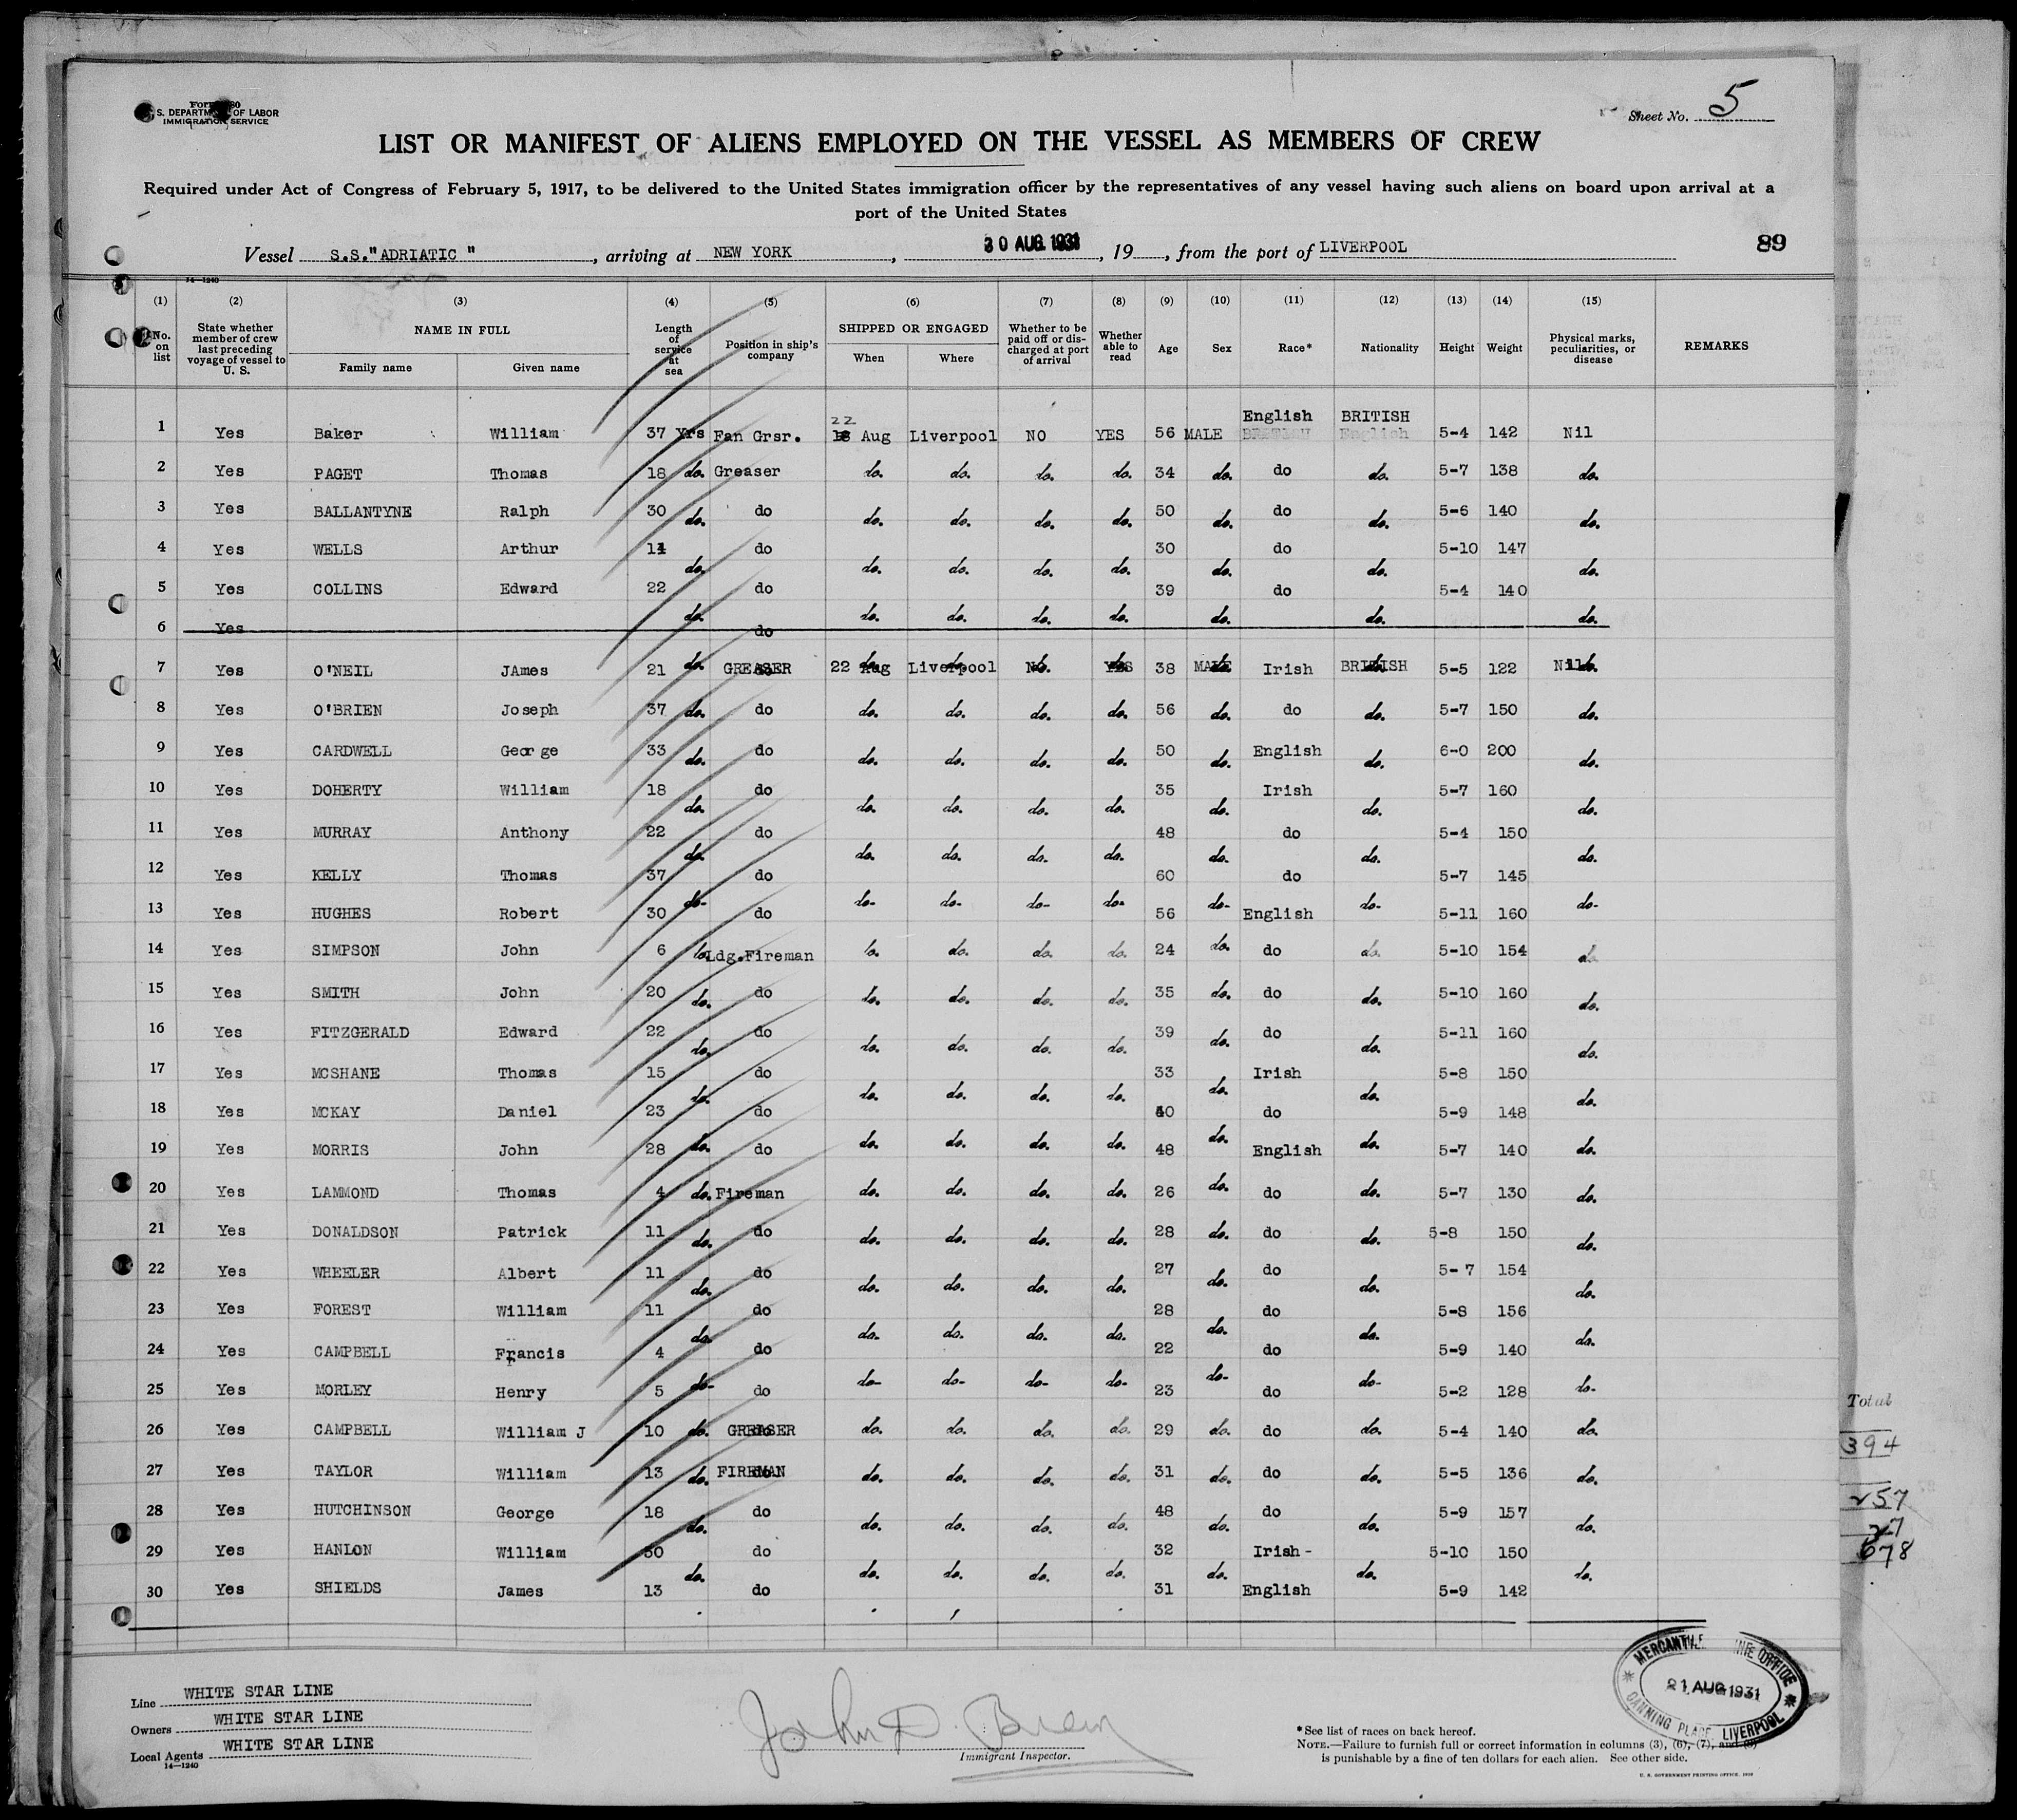 S. DEPARTMENT OF LABOR
IMMIGRATION SERVICE
Sheet No. 5
LIST OR MANIFEST OF ALIENS EMPLOYED ON THE VESSEL AS MEMBERS OF CREW
Required under Act of Congress of February 5, 1917, to be delivered to the United States immigration officer by the representatives of any vessel having such aliens on board upon arrival at a
port of the United States
Vessel S.S."ADRIATIC ", arriving at NEW YORK, 30 AUG. 1931, 19, from the port of LIVERPOOL 89
14—1240
(1) (2) (3) (4) (5) (6) (7) (8) (9) (10) (11) (12) (13) (14) (15)
No. on list State whether member of crew last preceding voyage of vessel to U. S. NAME IN FULL Family name Given name Length of service at sea Position in ship's company SHIPPED OR ENGAGED When Where Whether to be paid off or discharged at port of arrival Whether able to read Age Sex Race* Nationality Height Weight Physical marks, peculiarities, or disease REMARKS
1 Yes Baker William 37 Yrs Fan Grsr. 22 Aug Liverpool NO YES 56 MALE English BRITISH 5-4 142 Nil
2 Yes PAGET Thomas 18 do. Greaser do. do. do. do. 34 do. do do. 5-7 138 do.
3 Yes BALLANTYNE Ralph 30 do. do do. do. do. do. 50 do. do do. 5-6 140 do.
4 Yes WELLS Arthur 14 do. do do. do. do. do. 30 do. do do. 5-10 147 do.
5 Yes COLLINS Edward 22 do. do do. do. do. do. 39 do. do do. 5-4 140 do.
6 Yes do
7 Yes O'NEIL JAmes 21 do. GREASER 22 Aug Liverpool NO. YES 38 MALE Irish BRITISH 5-5 122 Nil
8 Yes O'BRIEN Joseph 37 do. do do. do. do. do. 56 do. do do. 5-7 150 do.
9 Yes CARDWELL George 33 do. do do. do. do. do. 50 do. English do. 6-0 200 do.
10 Yes DOHERTY William 18 do. do do. do. do. do. 35 do. Irish do. 5-7 160 do.
11 Yes MURRAY Anthony 22 do. do do. do. do. do. 48 do. do do. 5-4 150 do.
12 Yes KELLY Thomas 37 do- do do- do- do- do- 60 do- do do- 5-7 145 do-
13 Yes HUGHES Robert 30 do 56 English 5-11 160
14 Yes SIMPSON John 6 do. Ldg.Fireman do. do. do. do. 24 do. do do. 5-10 154 do
15 Yes SMITH John 20 do. do do. do. do. do. 35 do. do do. 5-10 160 do.
16 Yes FITZGERALD Edward 22 do. do do. do. do. do. 39 do. do do. 5-11 160 do.
17 Yes MCSHANE Thomas 15 do. do do. do. do. do. 33 do. Irish do. 5-8 150 do.
18 Yes MCKAY Daniel 23 do 40 do 5-9 148
19 Yes MORRIS John 28 do. do do. do. do. do. 48 do. English do. 5-7 140 do.
20 Yes LAMMOND Thomas 4 do. Fireman do. do. do. do. 26 do. do do. 5-7 130 do.
21 Yes DONALDSON Patrick 11 do. do do. do. do. do. 28 do. do do. 5-8 150 do.
22 Yes WHEELER Albert 11 do. do do. do. do. do. 27 do. do do. 5- 7 154 do.
23 Yes FOREST William 11 do. do do. do. do. do. 28 do. do do. 5-8 156 do.
24 Yes CAMPBELL Francis 4 do 22 do 5-9 140
25 Yes MORLEY Henry 5 do- do do- do- do- do- 23 do- do do- 5-2 128 do-
26 Yes CAMPBELL William J 10 do. GREASER do. do. do. do. 29 do. do do. 5-4 140 do.
27 Yes TAYLOR William 13 do. FIREMAN do. do. do. do. 31 do. do do. 5-5 136 do.
28 Yes HUTCHINSON George 18 do. do do. do. do. do. 48 do. do do. 5-9 157 do.
29 Yes HANLON William 30 do. do do. do. do. do. 32 do. Irish - do. 5-10 150 do.
30 Yes SHIELDS James 13 do 31 English 5-9 142
Total
394
257
27
678
Line WHITE STAR LINE
Owners WHITE STAR LINE
Local Agents WHITE STAR LINE
14—1240
John D. Brem
Immigrant Inspector.
MERCANTILE MARINE OFFICE
21 AUG 1931
CANNING PLACE LIVERPOOL
*See list of races on back hereof.
NOTE.—Failure to furnish full or correct information in columns (3), (6), (7), and (8)
is punishable by a fine of ten dollars for each alien. See other side.
U. S. GOVERNMENT PRINTING OFFICE